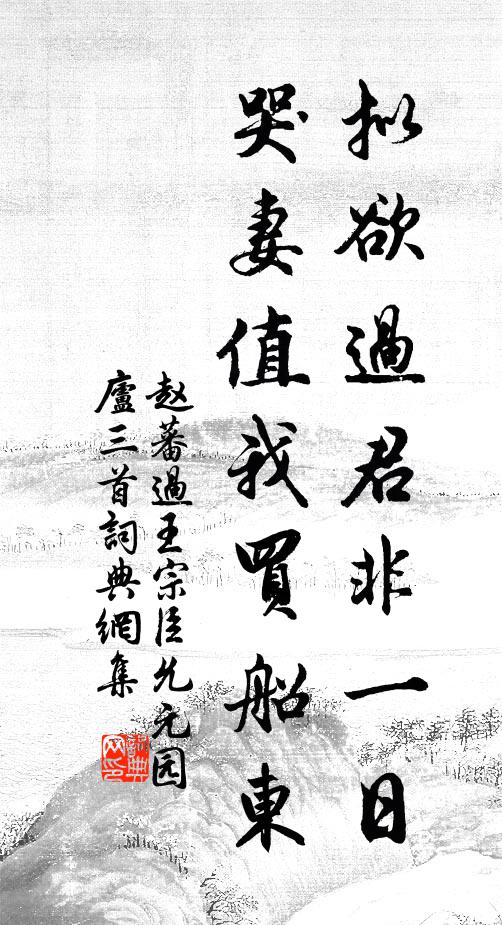 拟欲過君非一日
哭妻值我買船東
赵蕃過王宗臣允元园
廬三首詞典網集
詞典
网印